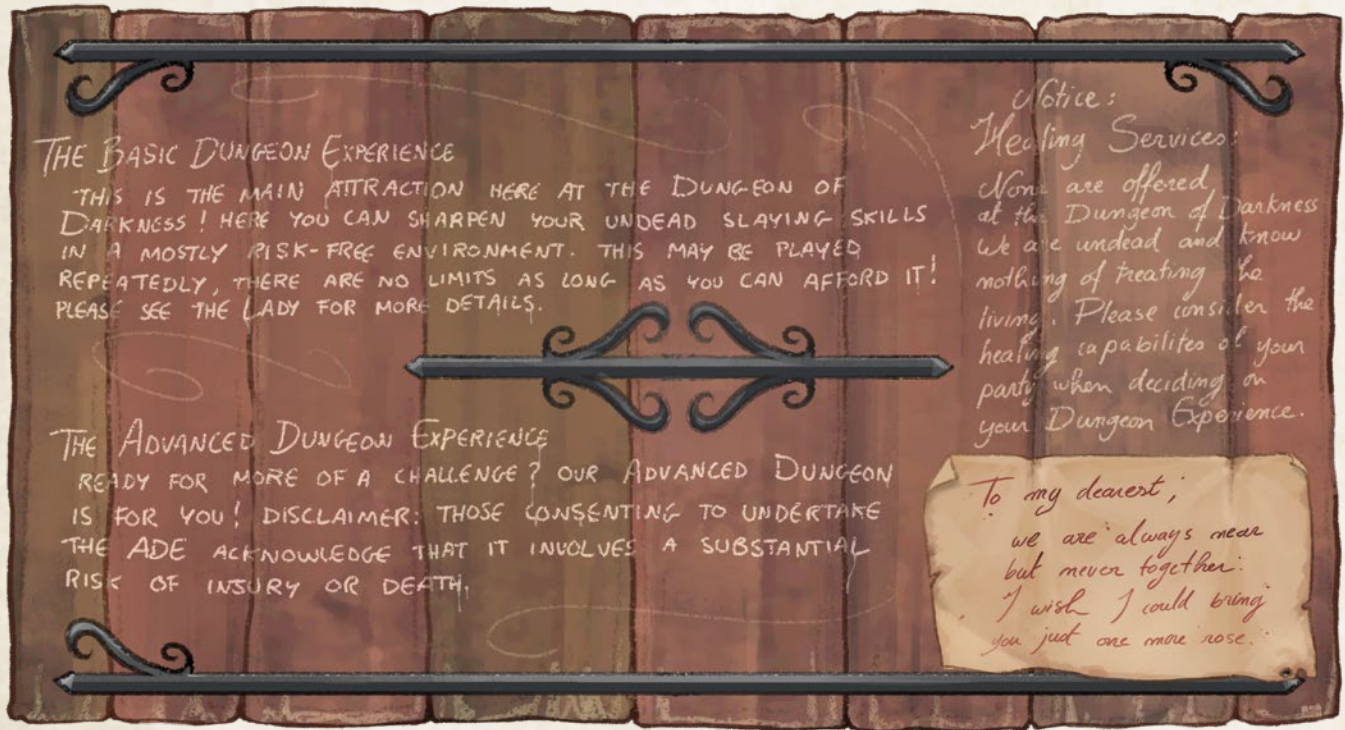 THE BASIC DUNGEON EXPERIENCE
THIS IS THE MAIN ATTRACTION HERE AT THE DUNGEON OF
DARKNESS! HERE YOU CAN SHARPEN YOUR UNDEAD SLAYING SKILLS
IN A MOSTLY RISK-FREE ENVIRONMENT. THIS MAY BE PLAYED
REPEATEDLY, THERE ARE NO LIMITS AS LONG AS YOU CAN AFFORD IT!
PLEASE SEE THE LADY FOR MORE DETAILS.
THE ADVANCED DUNGEON EXPERIENCE
READY FOR MORE OF A CHALLENGE? OUR ADVANCED DUNGEON
IS FOR YOU! DISCLAIMER: THOSE CONSENTING TO UNDERTAKE
THE ADE ACKNOWLEDGE THAT IT INVOLVES A SUBSTANTIAL
RISK OF INSURY OR DEATH.
Notice:
Healing Services:
None are offered
at the Dungeon of Darkness
We are undead and know
nothing of treating the
living. Please consider the
healing capabilites of your
party when deciding on
your Dungeon Experience.
To my dearest;
we are always near
but never together.
I wish I could bring
you just one more rose.